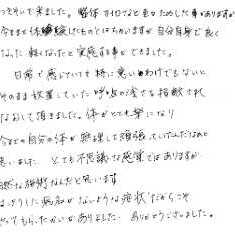 っそいで来ました。整体やイロイロと色々ためした事がありますが
今までの体験したものとはちがいますが自分自身で良く
なった 軽くなったと実感する事ができました。
日常で感じていても特に悪いわけでもないと
そのまま放置していた呼吸の浅さも指摘され
なおして頂きました。体がとても楽になり
今までの自分の体が無理して頑張っていたんだなあと
思いました。とても不思議な感覚ではありますが
自然な施術なんだと思います
はっきりした病名がないような症状だからこそ
やってもらったかいがありました。ありがとうございました。